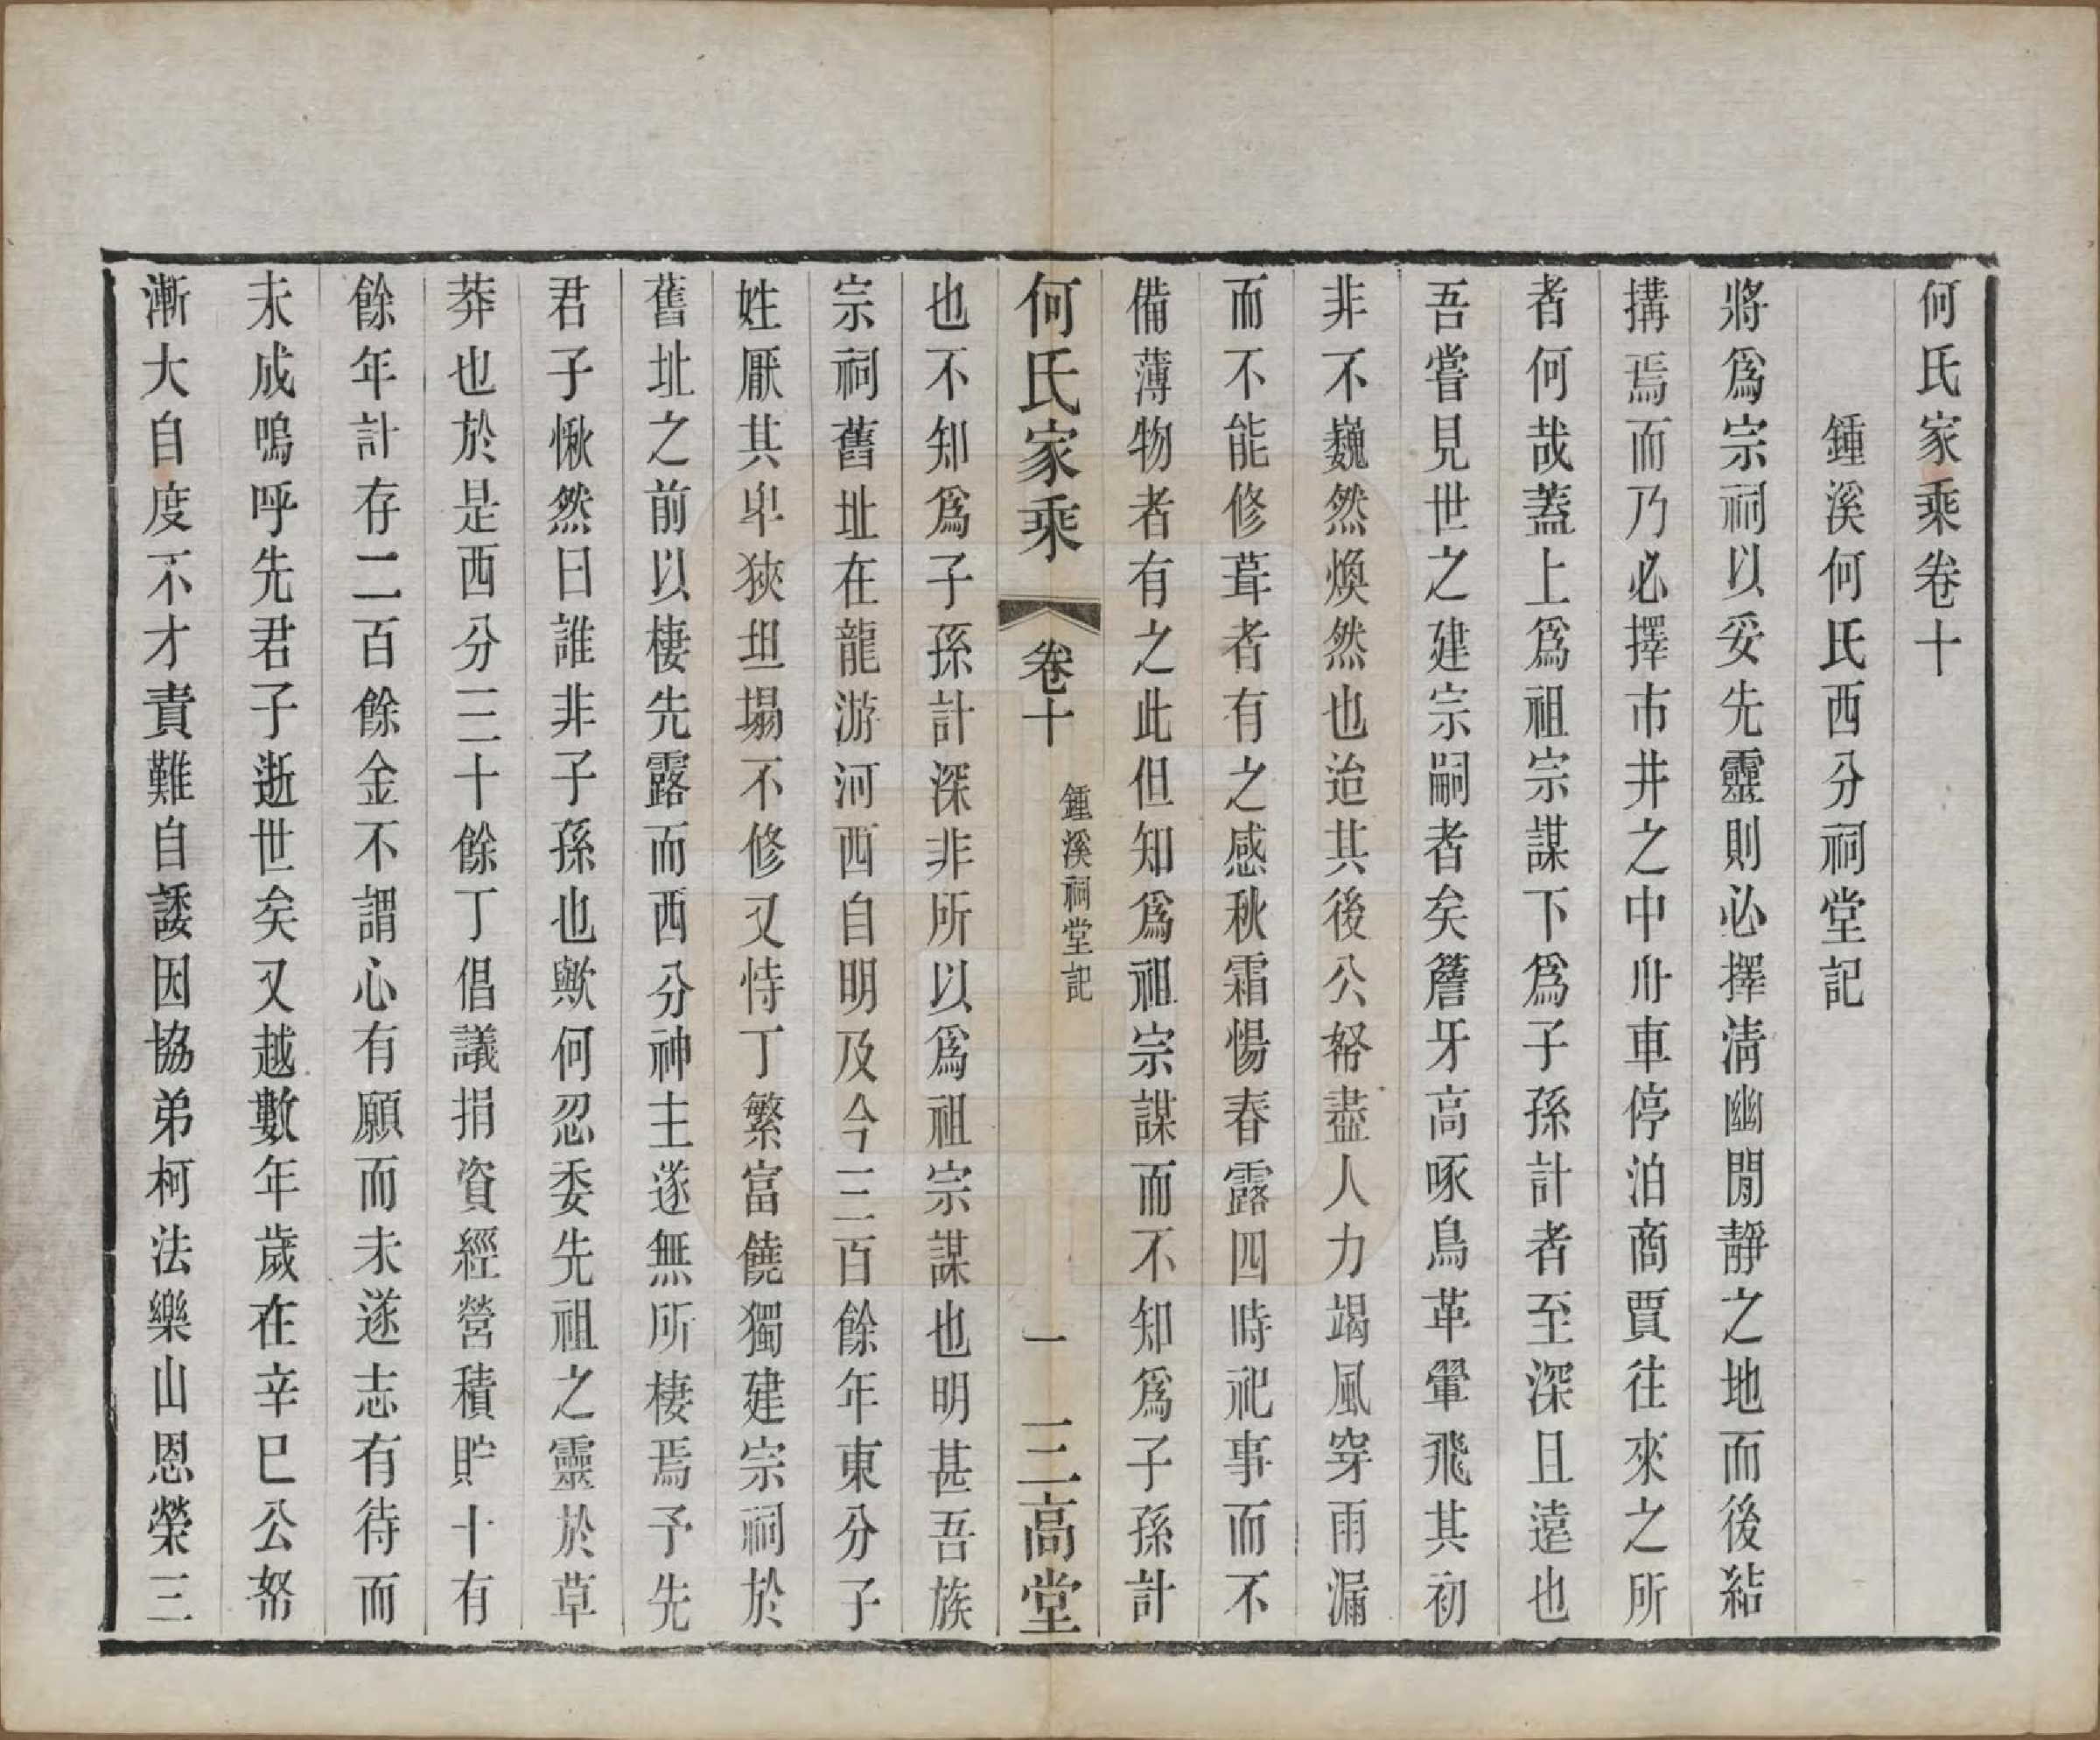 何氏家乘卷十
鍾溪何氏西分祠堂記
將爲宗祠以妥先靈則必擇淸幽閒靜之地而後結
搆焉而乃必擇市井之中舟車停泊商賈往來之所
者何哉蓋上爲祖宗謀下爲子孫計者至深且遠也
吾嘗見世之建宗嗣者矣簷牙高啄鳥革翬飛其初
非不巍然煥然也迨其後公帑盡人力竭風穿雨漏
而不能修葺者有之感秋霜惕春露四時祀事而不
備薄物者有之此但知爲祖宗謀而不知爲子孫計
何氏家乘 卷十 鍾溪祠堂記 一 三高堂
也不知爲子孫計深非所以爲祖宗謀也明甚吾族
宗祠舊址在龍游河西自明及今三百餘年東分子
姓厭其卑狹坦塌不修又恃丁繁富饒獨建宗祠於
舊址之前以棲先露而西分神主遂無所棲焉予先
君子愀然曰誰非子孫也歟何忍委先祖之靈於草
莽也於是西分三十餘丁倡議捐資經營積貯十有
餘年計存二百餘金不謂心有願而未遂志有待而
未成嗚呼先君子逝世矣又越數年歲在辛巳公帑
漸大自度不才責難自諉因協弟柯法樂山恩榮三